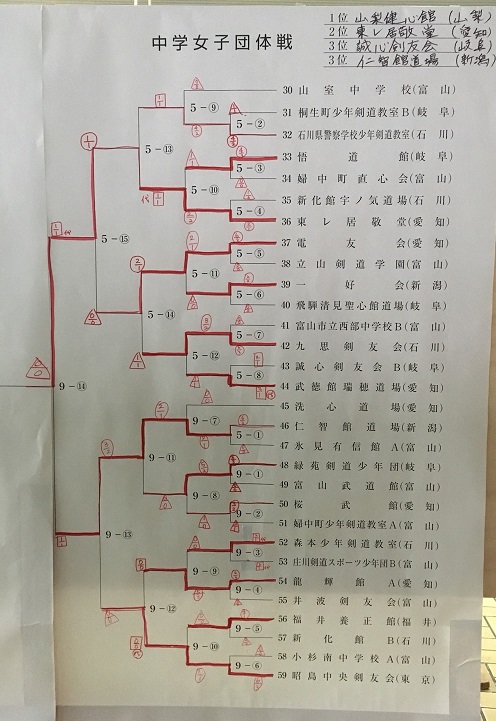 1位 山梨健心館 (山梨)
2位 東レ居敬堂 (愛知)
3位 誠心剣友会 (岐阜)
3位 仁智館道場 (新潟)
中学女子団体戦
30 山室中学校(富山)
31 桐生町少年剣道教室B(岐阜)
32 石川県警察学校少年剣道教室(石川)
33 悟道館(岐阜)
34 婦中町直心会(富山)
35 新化館宇ノ気道場(石川)
36 東レ居敬堂(愛知)
37 電友会(愛知)
38 立山剣道学園(富山)
39 一好会(新潟)
40 飛騨清見聖心館道場(岐阜)
41 富山市立西部中学校B(富山)
42 九思剣友会(石川)
43 誠心剣友会B(岐阜)
44 武徳館瑞穂道場(愛知)
45 洗心道場(愛知)
46 仁智館道場(新潟)
47 氷見有信館A(富山)
48 緑苑剣道少年団(岐阜)
49 富山武道館(富山)
50 桜武館(愛知)
51 婦中町少年剣道教室A(富山)
52 森本少年剣道教室(石川)
53 庄川剣道スポーツ少年団B(富山)
54 龍輝館A(愛知)
55 井波剣友会(富山)
56 福井養正館(福井)
57 新化館B(石川)
58 小杉南中学校A(富山)
59 昭島中央剣友会(東京)
5-⑨
5-②
5-⑬
5-③
5-⑩
5-④
5-⑮
5-⑤
5-⑪
5-⑥
5-⑭
5-⑦
5-⑫
5-⑧
9-⑭
9-⑦
5-①
9-⑪
9-①
9-⑧
9-②
9-⑬
9-③
9-⑨
9-④
9-⑫
9-⑤
9-⑩
9-⑥